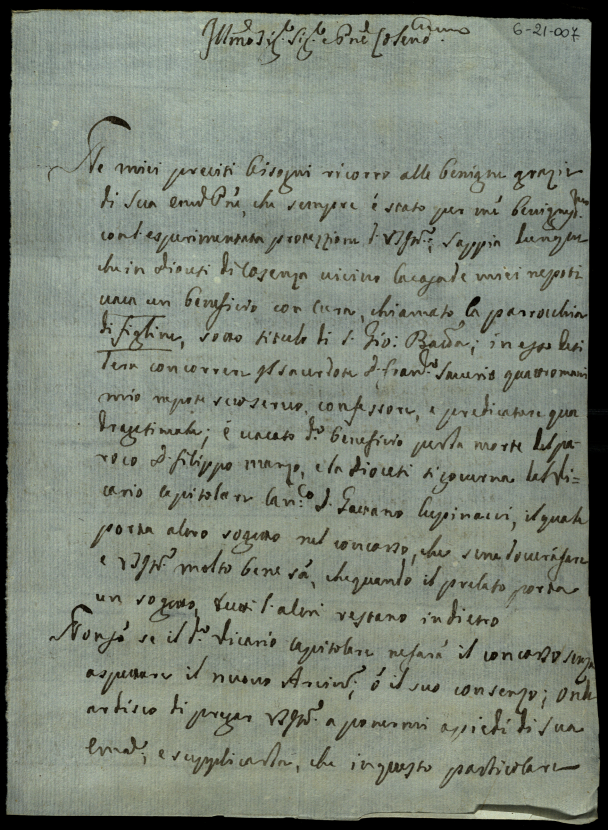 6-21-007
Illmo Sig.r Sig.r e Pne Colen.mo
Ne miei precisi bisogni ricorro alle benigne grazie
di Sua emd Pne, che sempre è stato per mè benigniss.mo
con l'esperimentata protezzione di VSIll.ma, Sappia dunque
che in diocesi di Cosenza vicino la casa de miei neposti
vaca un beneficio con cura, chiamato la parrocchia
di figline, sotto titulo di S. Gio: Batta; in esso desi
dera concorrere il sacerdote D. Fran.co Saverio quattromani
mio nepote suo servo, confessore, e predicatore qua
dragesimale; è vacato d.o beneficio per la morte del pa-
roco D. Filippo manzo, e la diocesi si governa dal Vi-
cario capitolare Can.co D. Gaetano Lupinacci, il quale
porta altro sogetto nel concorso, che si ne doverà fare
e VSIll.ma molto bene sà, che quando il prelato porta
un sogetto, tutti l'altri restano indietro
Non sò se il d.o Vicario capitolare nefarà il concorso senza
aspettare il nuovo Arciv.o, ò il suo consenzo; onde
ardisco di pregar VSIll.ma a ponermi a piedi di Sua
Emd.a, e supplicarla, che in questo particolare